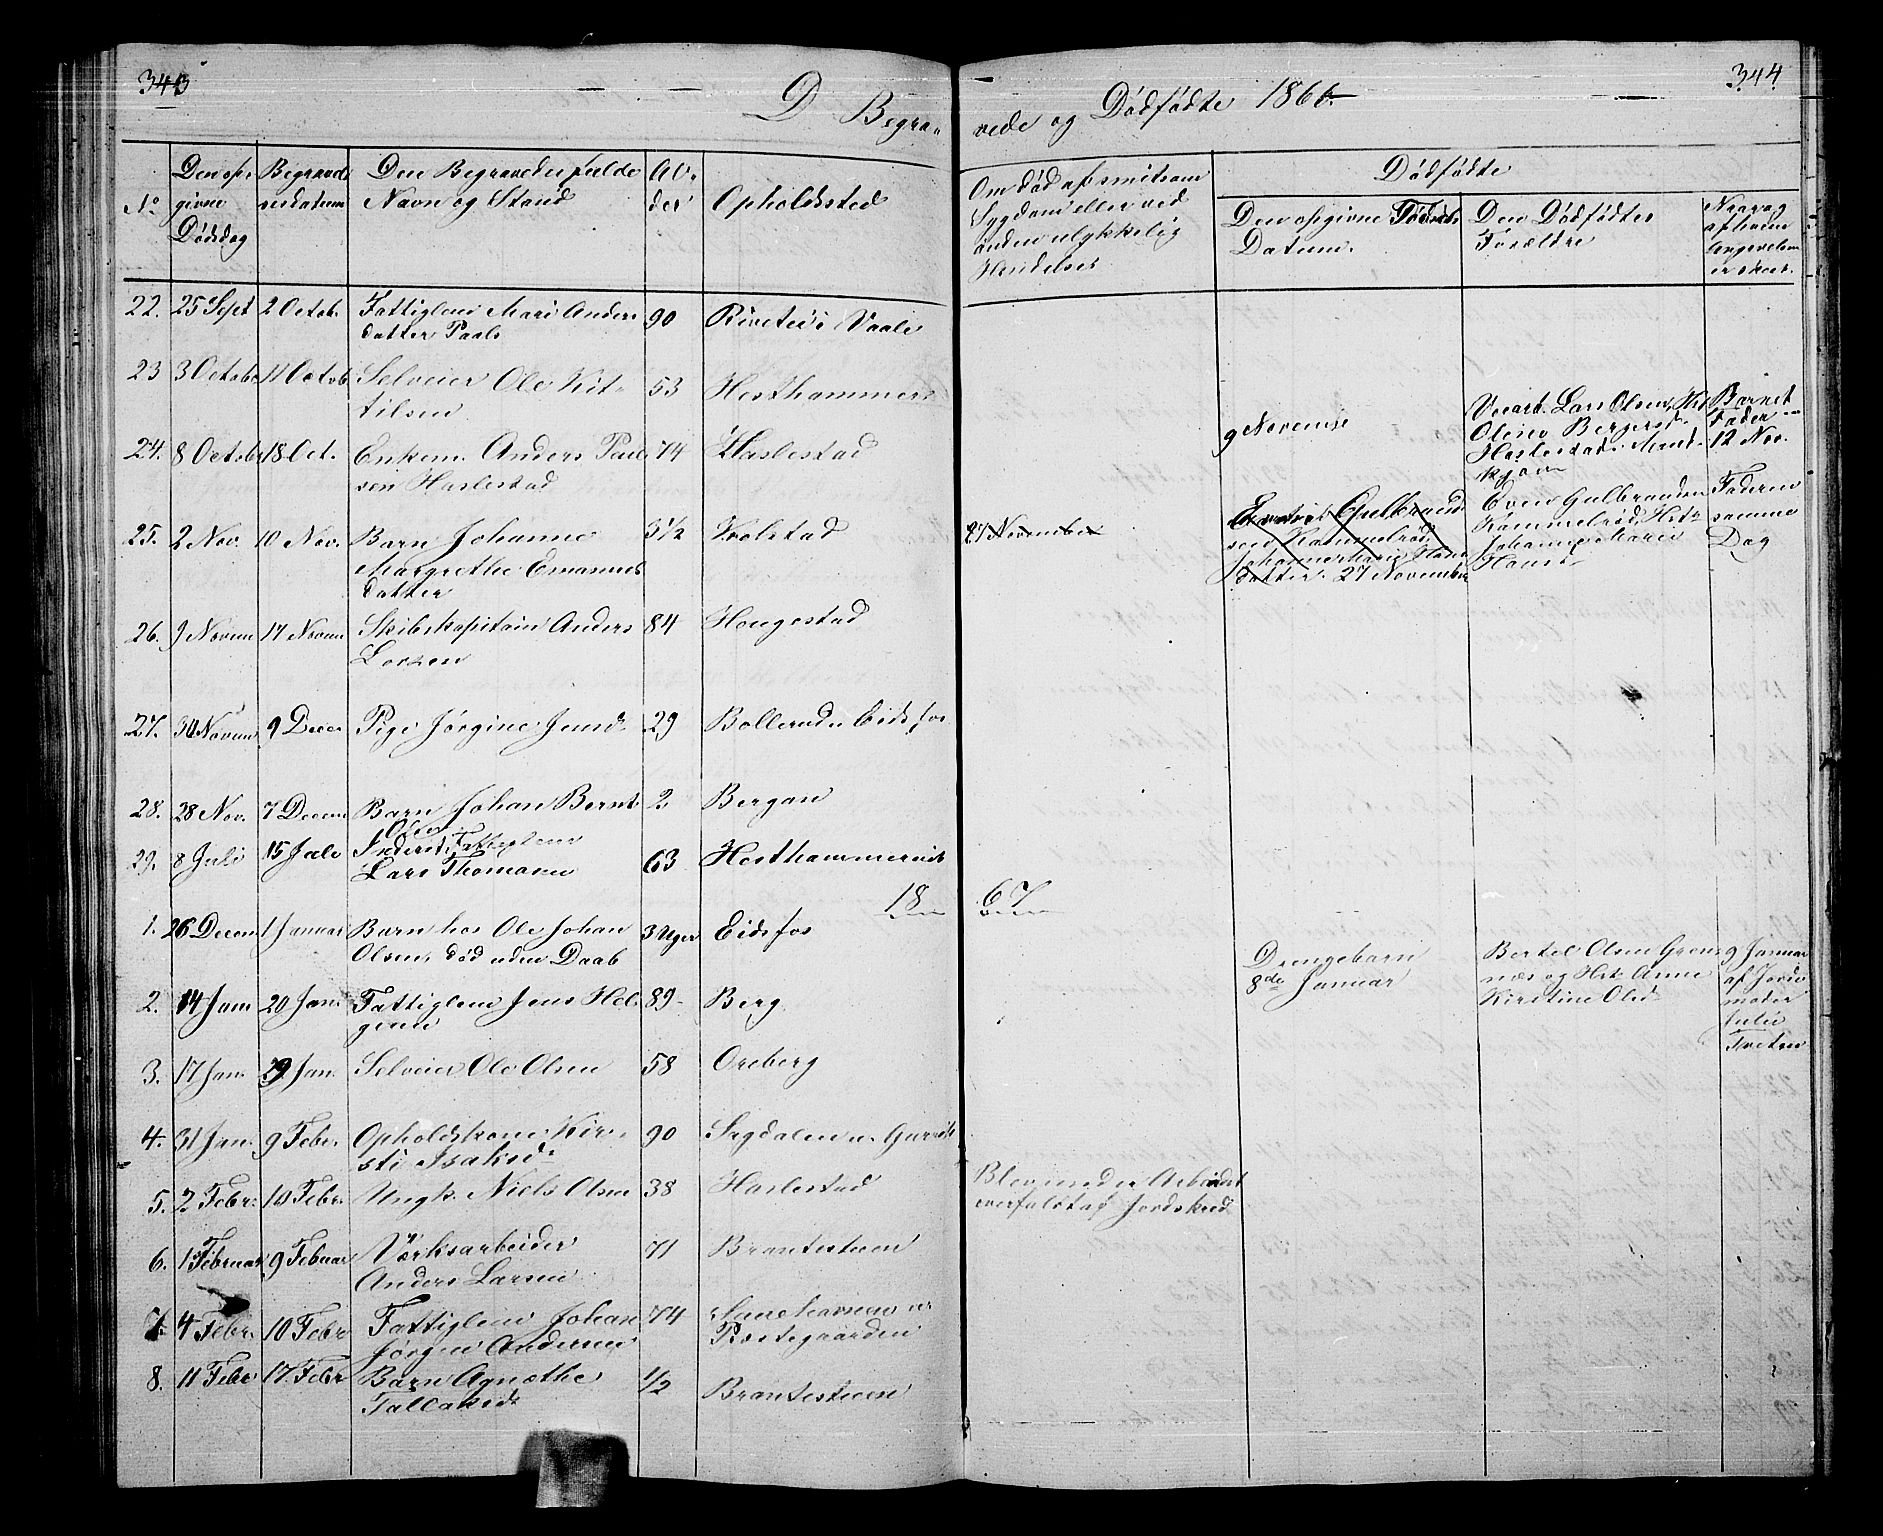 343
344
D Begra-
vede og Dødfødte 1866.
No
Den op-
givne
Dødsdag
Begravel
sesdatum
Den Begravedes fulde
Navn og Stand
Al-
der
Opholdssted
Om død af smitsom
Sygdom eller ved
anden ulykkelig
Hendelse
Dødfødte
Den opgivne Fødsels
Datum.
Den Dødfødtes
Forældre
Naar og
af hvem
Angivelsen
er skeet.
22. 25 Sept 2 Octob. Fattiglem Mari Anders
datter Paals 90 i Vaale
23 3 Octobe 11 Octob Selveier Ole Kit-
tilsen 53 Hesthammer
9 Novembe
Lars Olsen, Hst
Oliene Bergersd.
Haslestad
Barnets
Fader
12 Nov.
24. 8 Octobe 18 Oct. Enkem. Anders Paul
sen Haslestad 74 Haslestad
25. 2 Nov. 10 Nov. Barn Johanne
Margrethe Emanuels
datter 3 1/2 Kolstad
27 November
Gulbrand
sen Kammelrød
Johanne Marie Hans
datter. 27 November
Even Gulbrandsen
Kammelrød, Hst
Johanne Marie
Hansd
Faderen
samme
Dag
26. 9 Novem 17 Novem Skibskapitain Anders
Lorzen 84 Hengestad
27. 30 Novem 9 Decem Pige Jørgine Jensd. 29 Bollerud Eidsfos
28. 28 Nov. 7 Decem Barn Johan Bernt
Olsen 2 Bergan
29. 8 Juli 15 Juli Inderst Fattiglem
Lars Thomasen 63 Hesthammereie
1867
1. 26 Decem 1 Januar Barn hos Ole Johan
Olsen, død uden Daab 3 Uger Eidsfos
Drengebarn
8de Januar
Bertel Olsen Grøn
næs og Hst Anne
Kirstine Olsd
9 Januar
af Jorde
moder
Julie
Tveten
2. 14 Jan 20 Jan. Fattiglem Jens Hel-
gesen 89 Berg
3. 17 Jan. 29 Jan. Selveier Ole Olsen 58 Oreberg
4. 31 Jan. 9 Febr. Opholdskone Kir-
sti Isaksd. 90 Sagdalen
5. 2 Febr. 10 Febr. Ungk. Niels Olsen 38 Haslestad
Blev under Arbeidet
overfaldt af Jordskred
6. 1 Februar 9 Febuar Værksarbeider
Anders Larsen 71 Brantesteen
7. 4 Febr. 10 Febr Fattiglem Johan
Jørgen Andersen 74
Præstegaarden
8. 11 Febr 17 Febr Barn Agnethe
Tallaksd. 1/2 Brantesteen